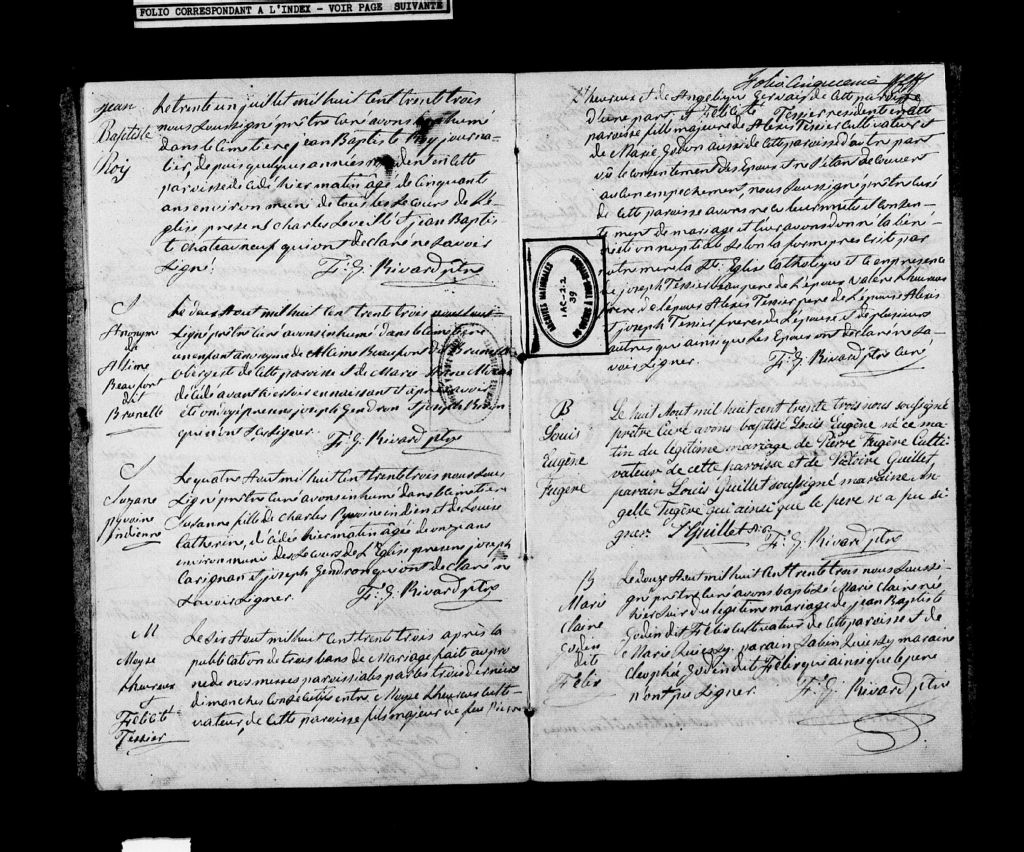 FOLIO CORRESPONDANT A L'INDEX - VOIR PAGE SUIVANTE
Jean
Baptiste
Roy
Le trente un juillet mil huit cent trente trois
nous soussigné prêtre curé avons inhumé
dans le cimetière jean Baptiste Roy journa-
lier, depuis quelques années résident en cette
paroisse décédé hier matin âgé de cinquant
ans environ muni de tous les secours de l'E-
glise present Charles Leveillé et jean Baptis
te Chateauneuf qui ont déclaré ne savoir
signé.
Fs. G. Rivard ptre
S
Anonyme
de
Allime
Beaufort
dit
Brunelle
Le deux Aout mil huit cent trente trois nous sous
signé prêtre curé avons inhumé dans le cimetière
un enfant anonyme de Allime Beaufort dit Brunelle
de cette paroisse et de Marie
décédé avant hier soir en naissant et après avoir
été ondoyé présens joseph Gendron et joseph
qui n'ont su signer.
Fs. G. Rivard ptre
S
Suzane
pyvoine
Indienne
Le quatre Aout mil huit cent trente trois nous sous
signé prêtre curé avons inhumé dans le cimetière
Suzanne fille de Charles Pyvoine indien et de Louise
Catherine, décédée hier matin âgée de onze ans
environ muni des secours de l'Eglise presens joseph
Carignan et joseph Gendron qui ont déclaré ne
savoir signer.
Fs. G. Rivard ptre
M
Moyse
Lheureux
Félicité
Tessier
Le six Aout mil huit cent trente trois après la
publication de trois bans de Mariage fait au pro
ne de nos messes paroissiales par les trois derniers
dimanches consecutifs entre Moyse Lheureux culti-
vateur de cette paroisse fils majeur de feu Pierre
Folio Cinquieme
L'heureux et de Angelique Gervais de cette paroisse
d'une part, et Félicité Tessier residente en cette
paroisse fille majeure de Alexis Tessier cultivateur et
de Marie Godon aussi de cette paroisse d'autre part
vu le consentement des Epoux et ne s'étan découvert
aucun empechement, nous soussigné prêtre curé
de cette paroisse avons recu leur mutuel consen-
tement de mariage et leur avons donné la béné-
diction nuptiale selon la forme prescrite par
notre mère la Ste. Eglise Catholique et en presence
de joseph Tessier beau pere de l'époux Valere Lheureux
frere de l'epoux Alexis Tessier pere de l'épouse Alexis
et joseph Tessier freres de l'épouse et de plusieurs
autres qui ainsi que les Epoux ont declaré ne sa-
voir signer.
Fs. G. Rivard ptre curé
ARCHIVES NATIONALES
IAC-2.2
39
B
Louis
Eugène
Fugère
Le huit Aout mil huit cent trente trois nous soussigné
prêtre Curé avons baptisé Louis Eugène né ce ma-
tin du légitime mariage de Pierre Fugère Culti-
vateur de cette paroisse et de Victoire Guillet
parain Louis Guillet soussigné maraine An-
gelle Fugère qui ainsi que le pere n'a pu si-
gner.
Ls Guillet
Fs. G. Rivard ptre
B
Marie
Claire
Godin
dit
Félix
Le douze Aout mil huit cent trente trois nous soussi-
gné prêtre curé avons baptisé Marie Claire née
hier soir du légitime mariage de jean Baptiste
Godin dit Félix cultivateur de cette paroisse et de
Marie
maraine
Cleophé Godin dit Félix qui ainsi que le pere
n'ont pu signer.
Fs. G. Rivard ptre